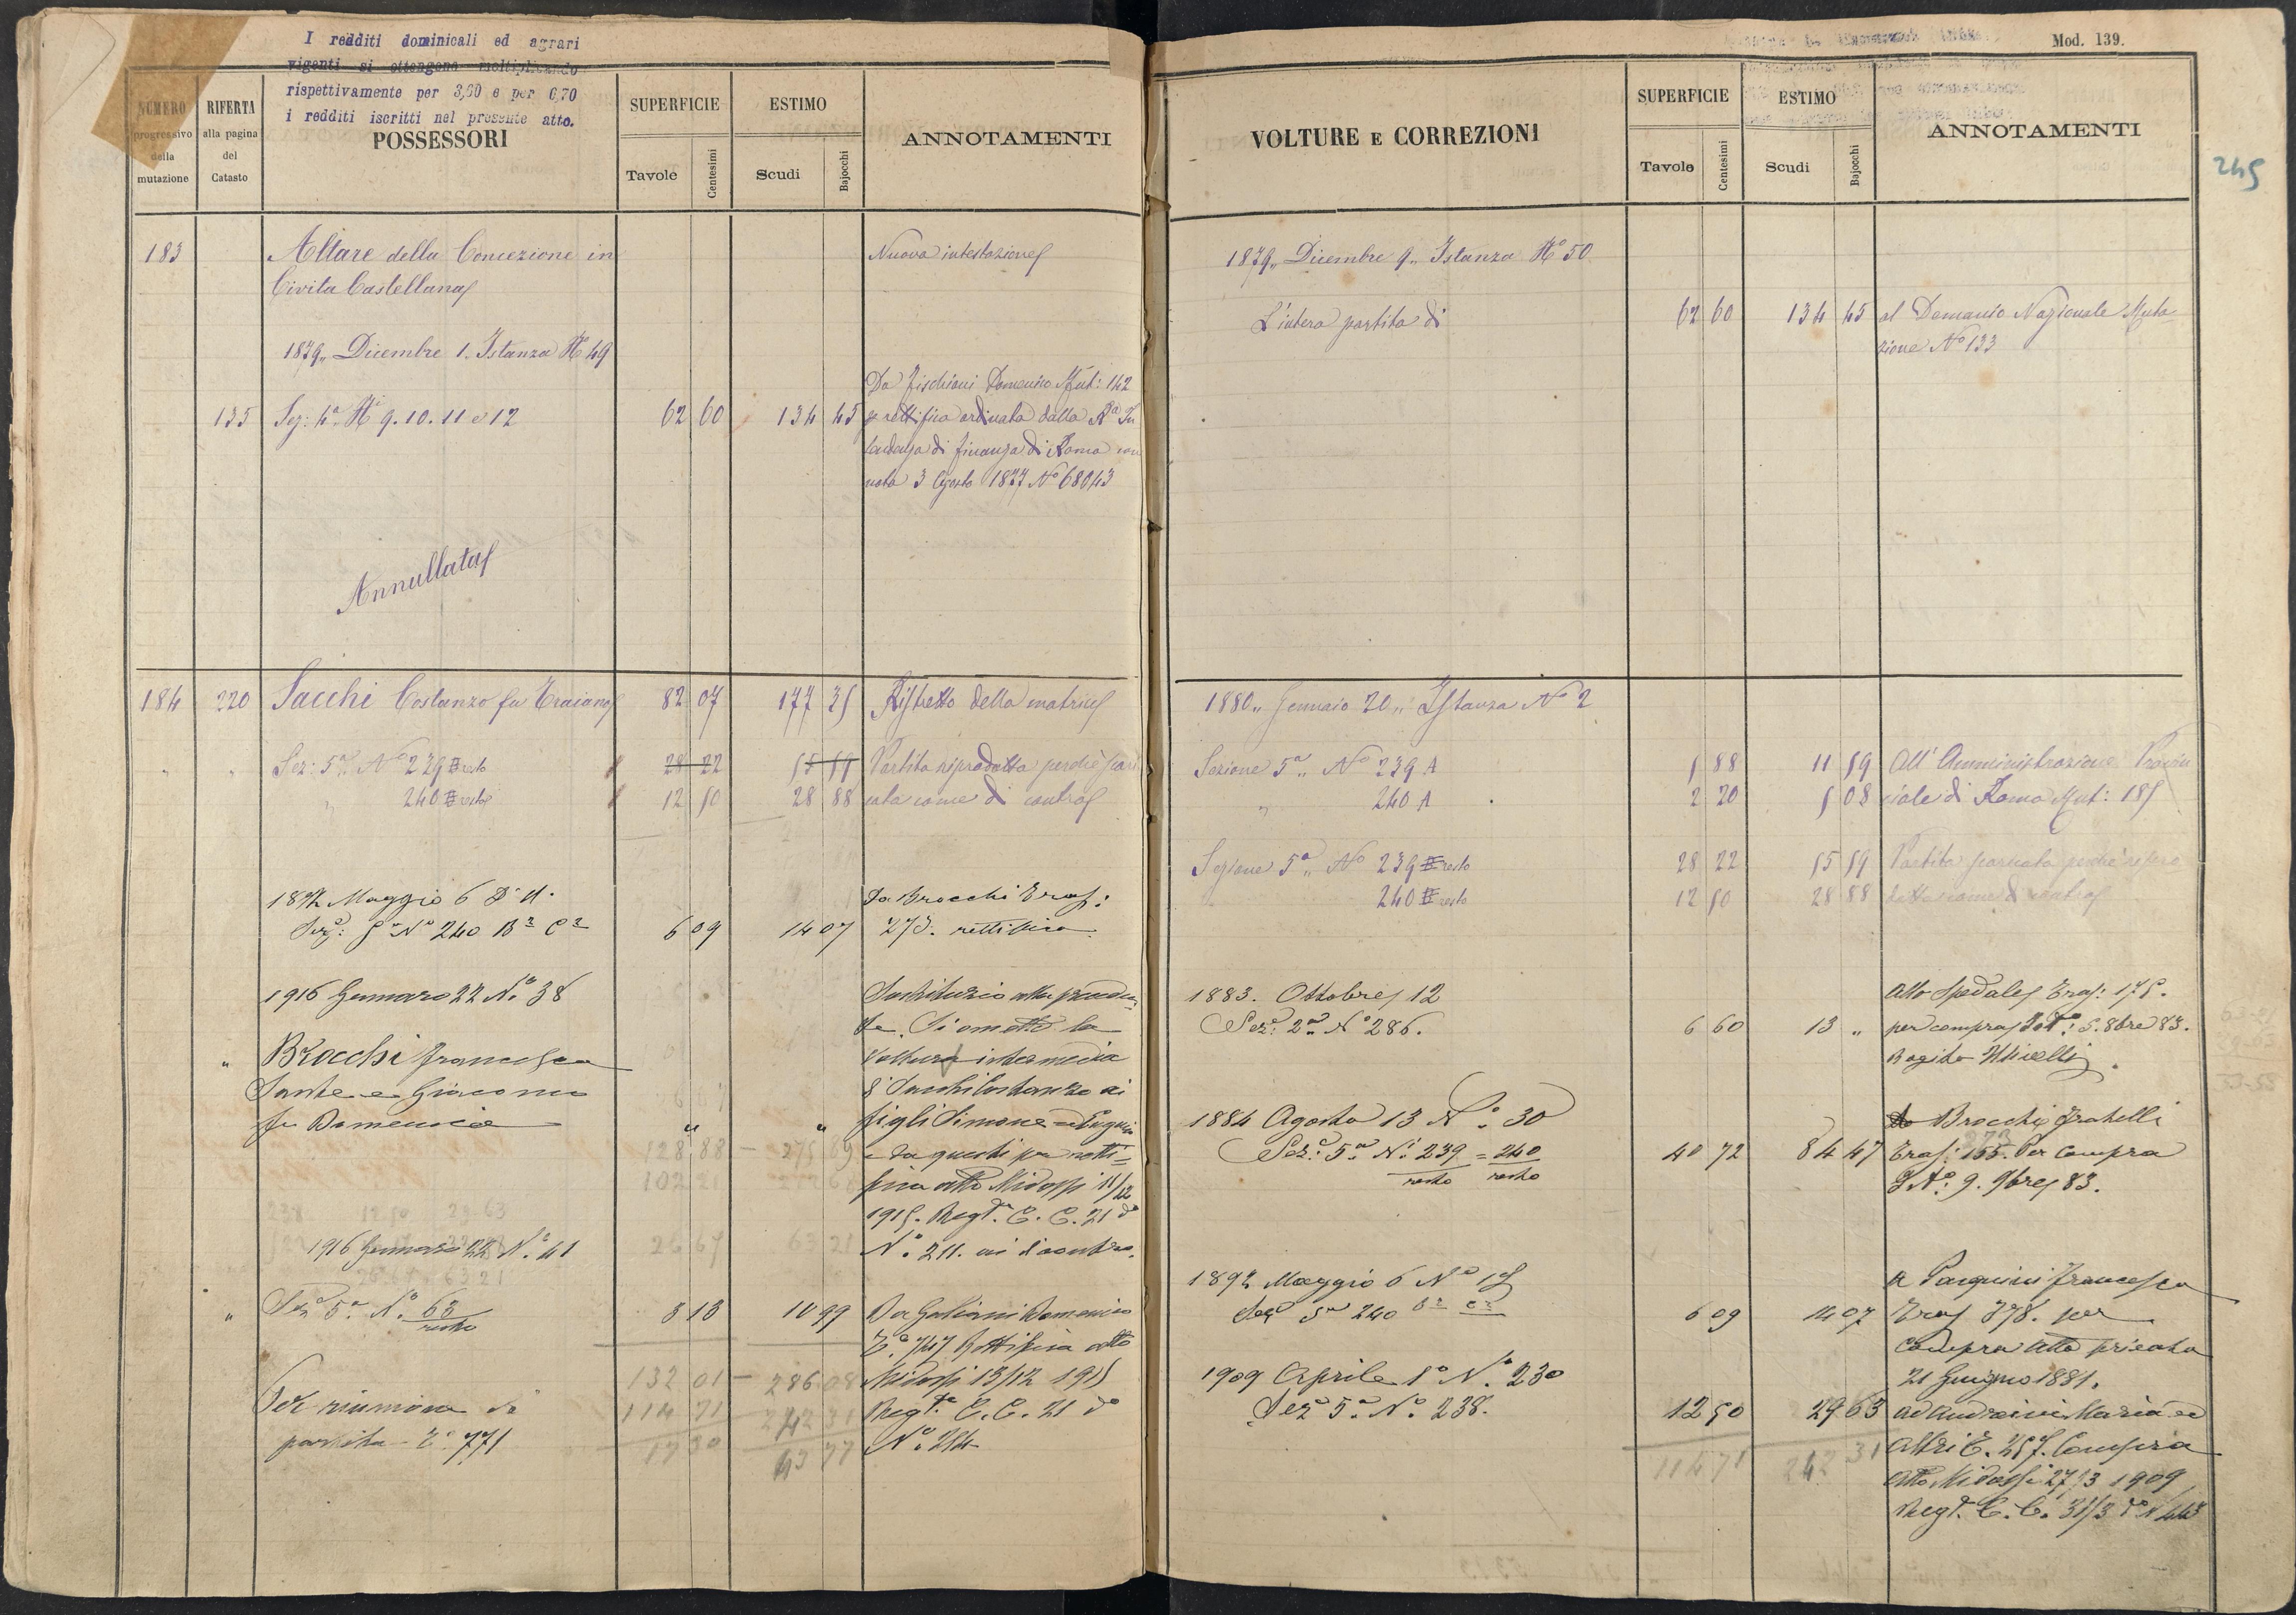 I redditi dominicali ed agrari
vigenti si ottengono moltiplicando
rispettivamente per 3,60 e per 6,70
i redditi iscritti nel presente atto.
NUMERO progressivo della mutazione
RIFERTA alla pagina del Catasto
POSSESSORI
SUPERFICIE
Tavole Centesimi
ESTIMO
Scudi Bajocchi
ANNOTAMENTI
183 Altare della Concezione in Nuova intestazione
Civita Castellana
1879,, Dicembre 1. Istanza N° 49
Da Domenico Mut: 142
135 Sez: 4a N° 9. 10. 11 e 12 62 60 134 45 rettifica ordinata dalla
di Finanza di Roma con
nota 3 Agosto 1877 N° 68043
Annullata
184 220 Sacchi Costanzo fu Traiano 82 07 177 35 Ristretto della matrice
" " Sez: 5a N° 239 resto 28 22 55 59 Partita riprodotta perchè
" 240 resto 12 50 28 88 come di contro
Maggio 6
Da Brocchi Tras:
N° 240 B2 C2 6 09 14 07 273. rettifica
1916 Gennaro 22 N° 38
Sostituzio alla
Si omette la
" Brocchi Francesca
Voltura intermedia
Sante e Giacomo
Sacchi Costanzo ai
fu Domenico " "
figli Simone e
128 88 275 89
e da questi per retti=
102 21
fica atto Midossi 11/12
238 12 50 29 63
1915. Regt. C. C. 21 do
1916 Gennaro 22 N° 41 26 67 63 21 N° 211. di contro.
26 67 63 21
" Sez 5a N° 63 resto 3 13 10 99 Da Galiani Domenico
T° 747 Rettifica atto
132 01 286 08 Midossi 13/12 1915
Per riunione di 114 71 242 31 Regt. C. C. 21 do
partita T° 771 17 30 43 77 N° 214
Mod. 139.
245
VOLTURE E CORREZIONI
SUPERFICIE
Tavole Centesimi
ESTIMO
Scudi Bajocchi
ANNOTAMENTI
1879,, Dicembre 9,, Istanza N° 50
L'intera partita di 62 60 134 45 al Demanio Nazionale Muta
zione N° 133
1880,, Gennaio 20,, Istanza N° 2
Sezione 5a,, N° 239 A 5 88 11 59 All'Amministrazione Provin
" 240 A 2 20 5 08 ciale di Roma Mut: 185
Sezione 5a,, N° 239 resto 28 22 55 59 Partita perchè
240 resto 12 50 28 88 come di contro
1883. Ottobre 12
Allo Spedale Tras: 175.
Sez. 2a N° 286. 6 60 13 " per compra 5. 8bre 83.
Rogito
1884 Agosto 13 N° 30
Brocchi Fratelli
Sez. 5a N° 239 = 240 40 72 84 47 Tras: 155. 273 Per Compra
resto resto
9. 9bre 83.
1892 Maggio 6 N°
a Pasquini Francesca
5a 240 B2 C2 6 09 14 07 Tras 378. per
Compra atto privato
21 Giugno 1881.
1909 Aprile 1° N° 230
Sez 5a N° 238. 12 50 29 63 ad Andreini Maria ed
114 71 242 31 altri T. 457. Compra
atto Midossi 27/3 1909
Regt. C. C. 31/3 do N 443